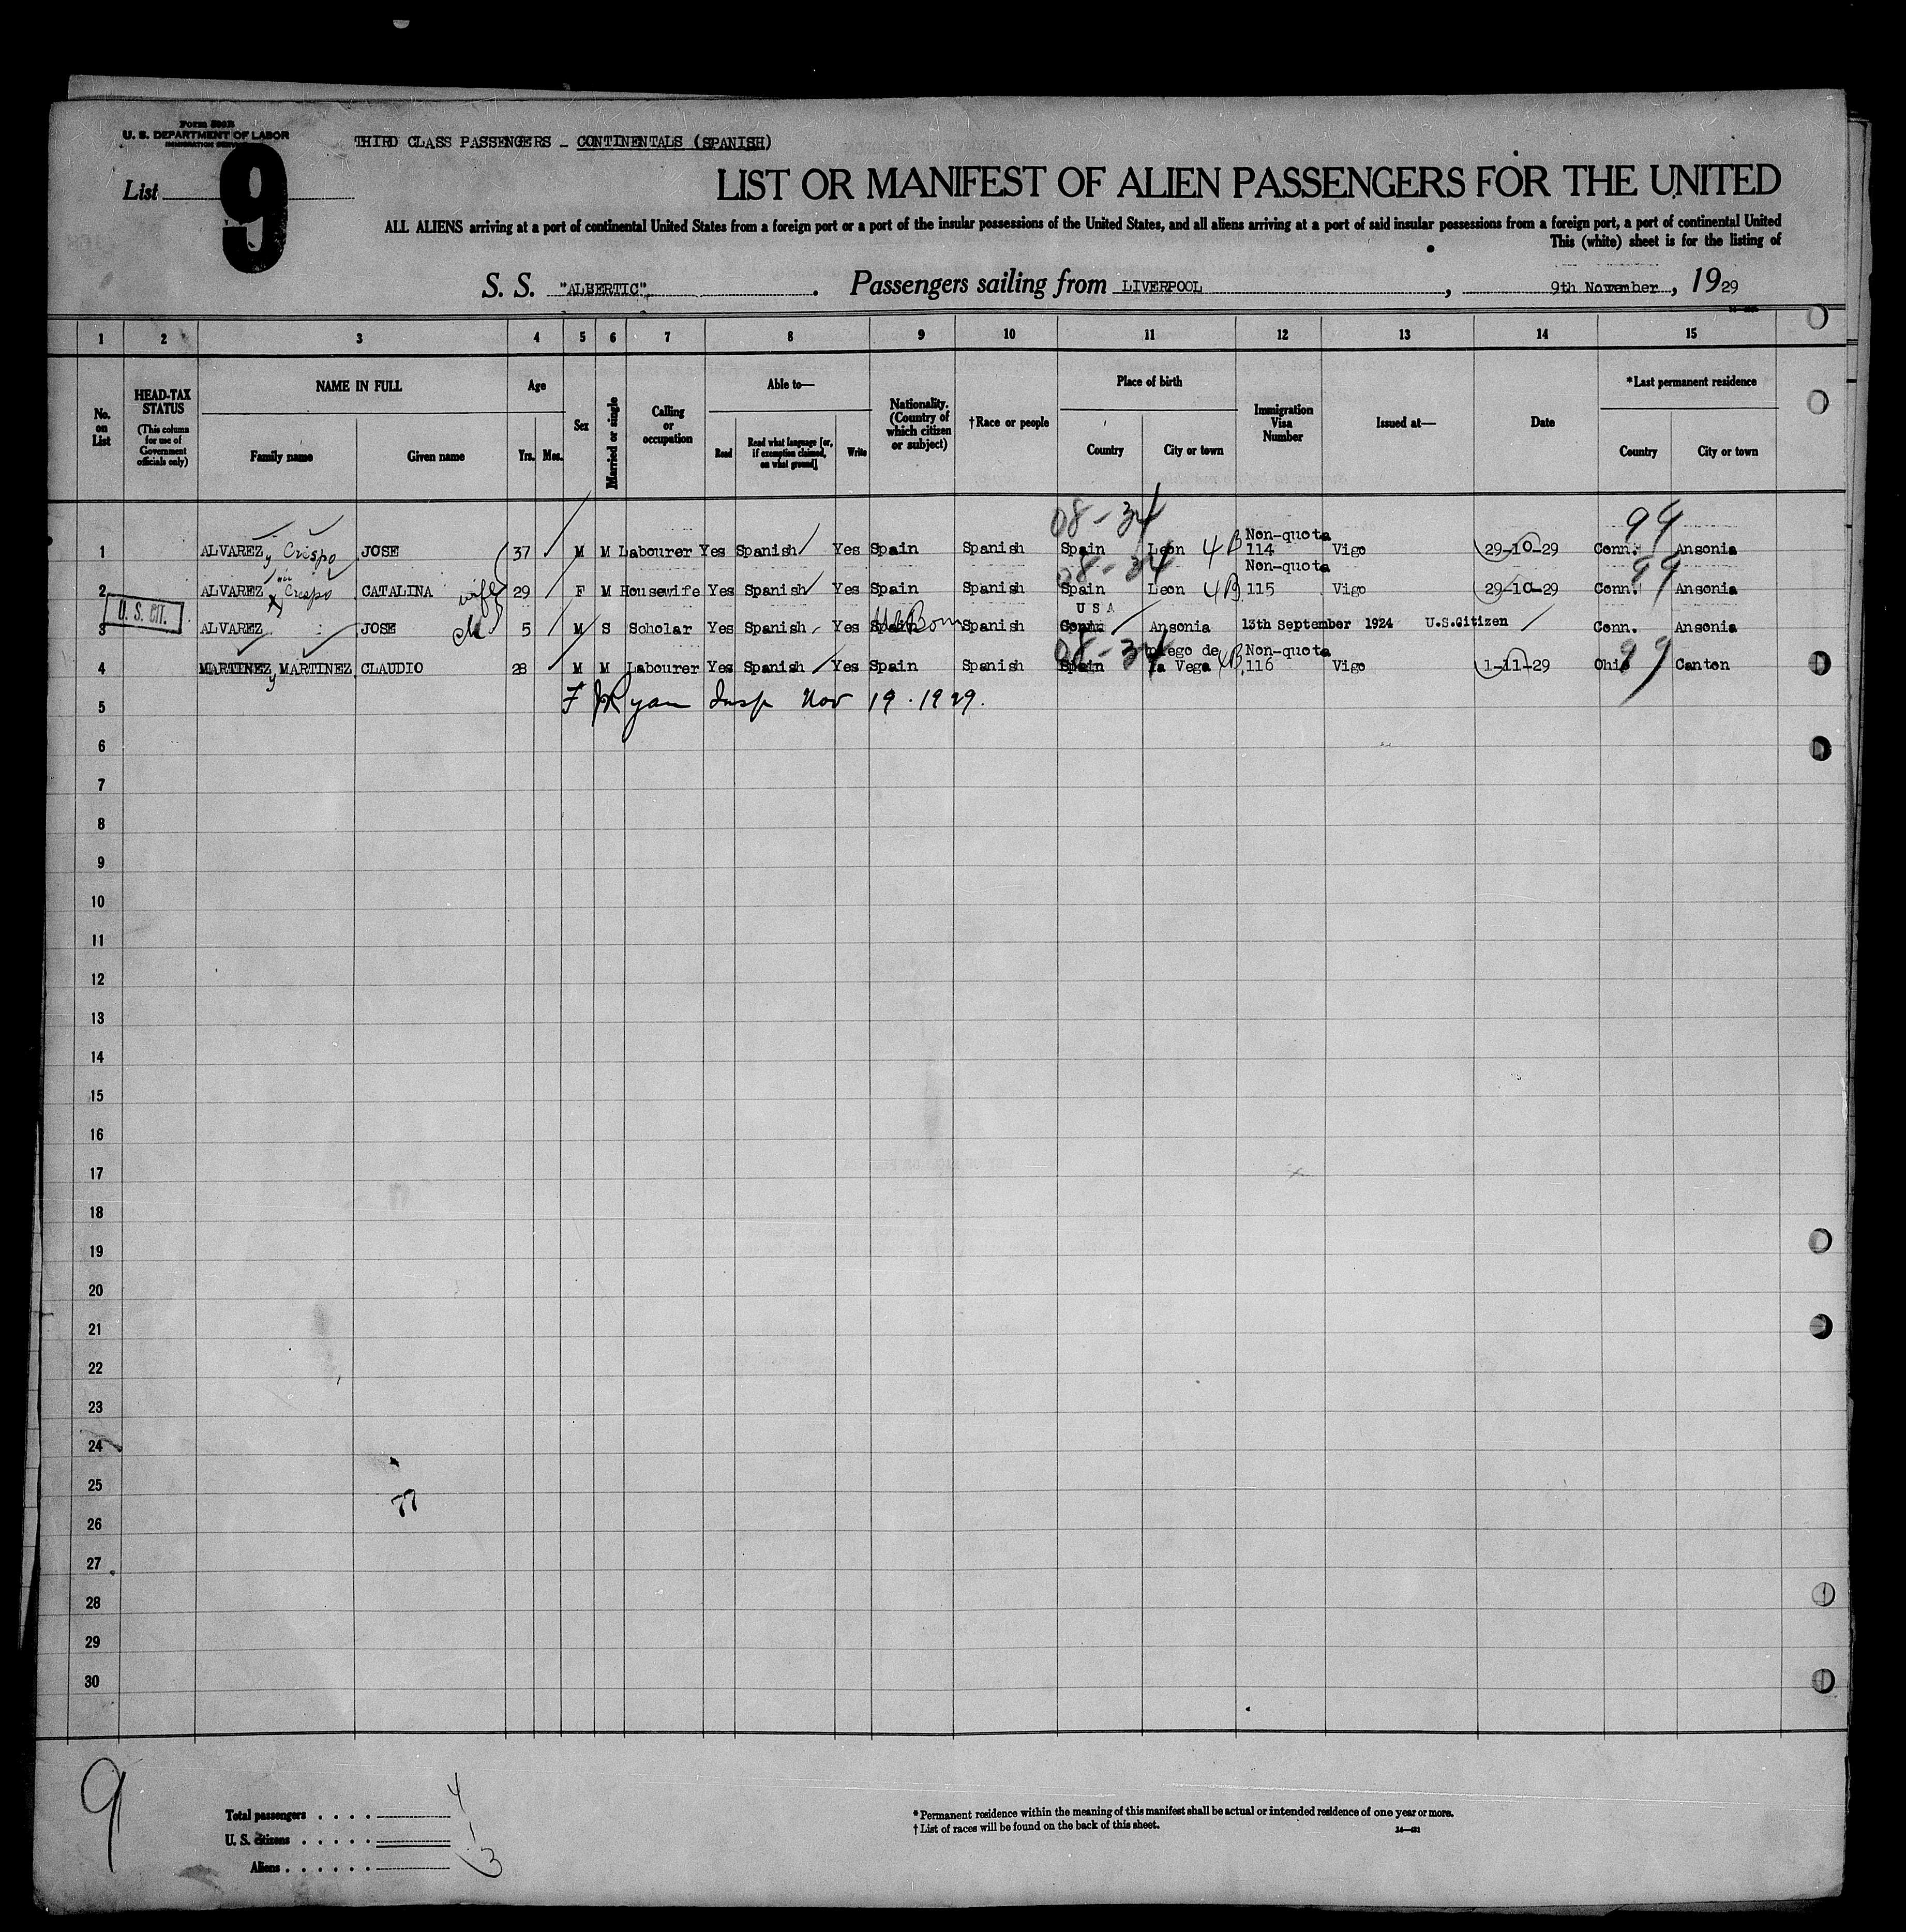 Form 500B
U. S. DEPARTMENT OF LABOR
IMMIGRATION SERVICE
THIRD CLASS PASSENGERS - CONTINENTALS (SPANISH)
List 9
LIST OR MANIFEST OF ALIEN PASSENGERS FOR THE UNITED
ALL ALIENS arriving at a port of continental United States from a foreign port or a port of the insular possessions of the United States, and all aliens arriving at a port of said insular possessions from a foreign port, a port of continental United
This (white) sheet is for the listing of
S. S. "ALBERTIC", . Passengers sailing from LIVERPOOL , 9th November , 1929
1 2 3 4 5 6 7 8 9 10 11 12 13 14 15
No. on List
HEAD-TAX STATUS
(This column for use of Government officials only)
NAME IN FULL
Family name Given name
Age
Yrs. Mos.
Sex
Married or single
Calling or occupation
Able to—
Read Read what language [or, if exemption claimed, on what ground] Write
Nationality. (Country of which citizen or subject)
†Race or people
Place of birth
Country City or town
Immigration Visa Number
Issued at—
Date
*Last permanent residence
Country City or town
08-34 99
1 ALVAREZ y Crispo JOSE 37 M M Labourer Yes Spanish Yes Spain Spanish Spain Leon 4B Non-quota 114 Vigo 29-10-29 Conn. Ansonia
08-34 99
2 ALVAREZ y Crispo CATALINA wife 29 F M Housewife Yes Spanish Yes Spain Spanish Spain Leon 4B Non-quota 115 Vigo 29-10-29 Conn. Ansonia
U. S. CIT.
3 ALVAREZ JOSE 5 M S Scholar Yes Spanish Yes Spain Born Spanish U S A Ansonia 13th September 1924 U.S.Citizen Conn. Ansonia
08-34 99
4 MARTINEZ y MARTINEZ CLAUDIO 28 M M Labourer Yes Spanish Yes Spain Spanish Spain la Vega 4B Non-quota 116 Vigo 1-11-29 Ohio Canton
5 F J Ryan Insp Nov 19. 1929.
6
7
8
9
10
11
12
13
14
15
16
17
18
19
20
21
22
23
24
25
77
26
27
28
29
30
9
Total passengers . . . . 4
U. S. citizens . . . . 1
Aliens . . . . . . 3
* Permanent residence within the meaning of this manifest shall be actual or intended residence of one year or more.
† List of races will be found on the back of this sheet.